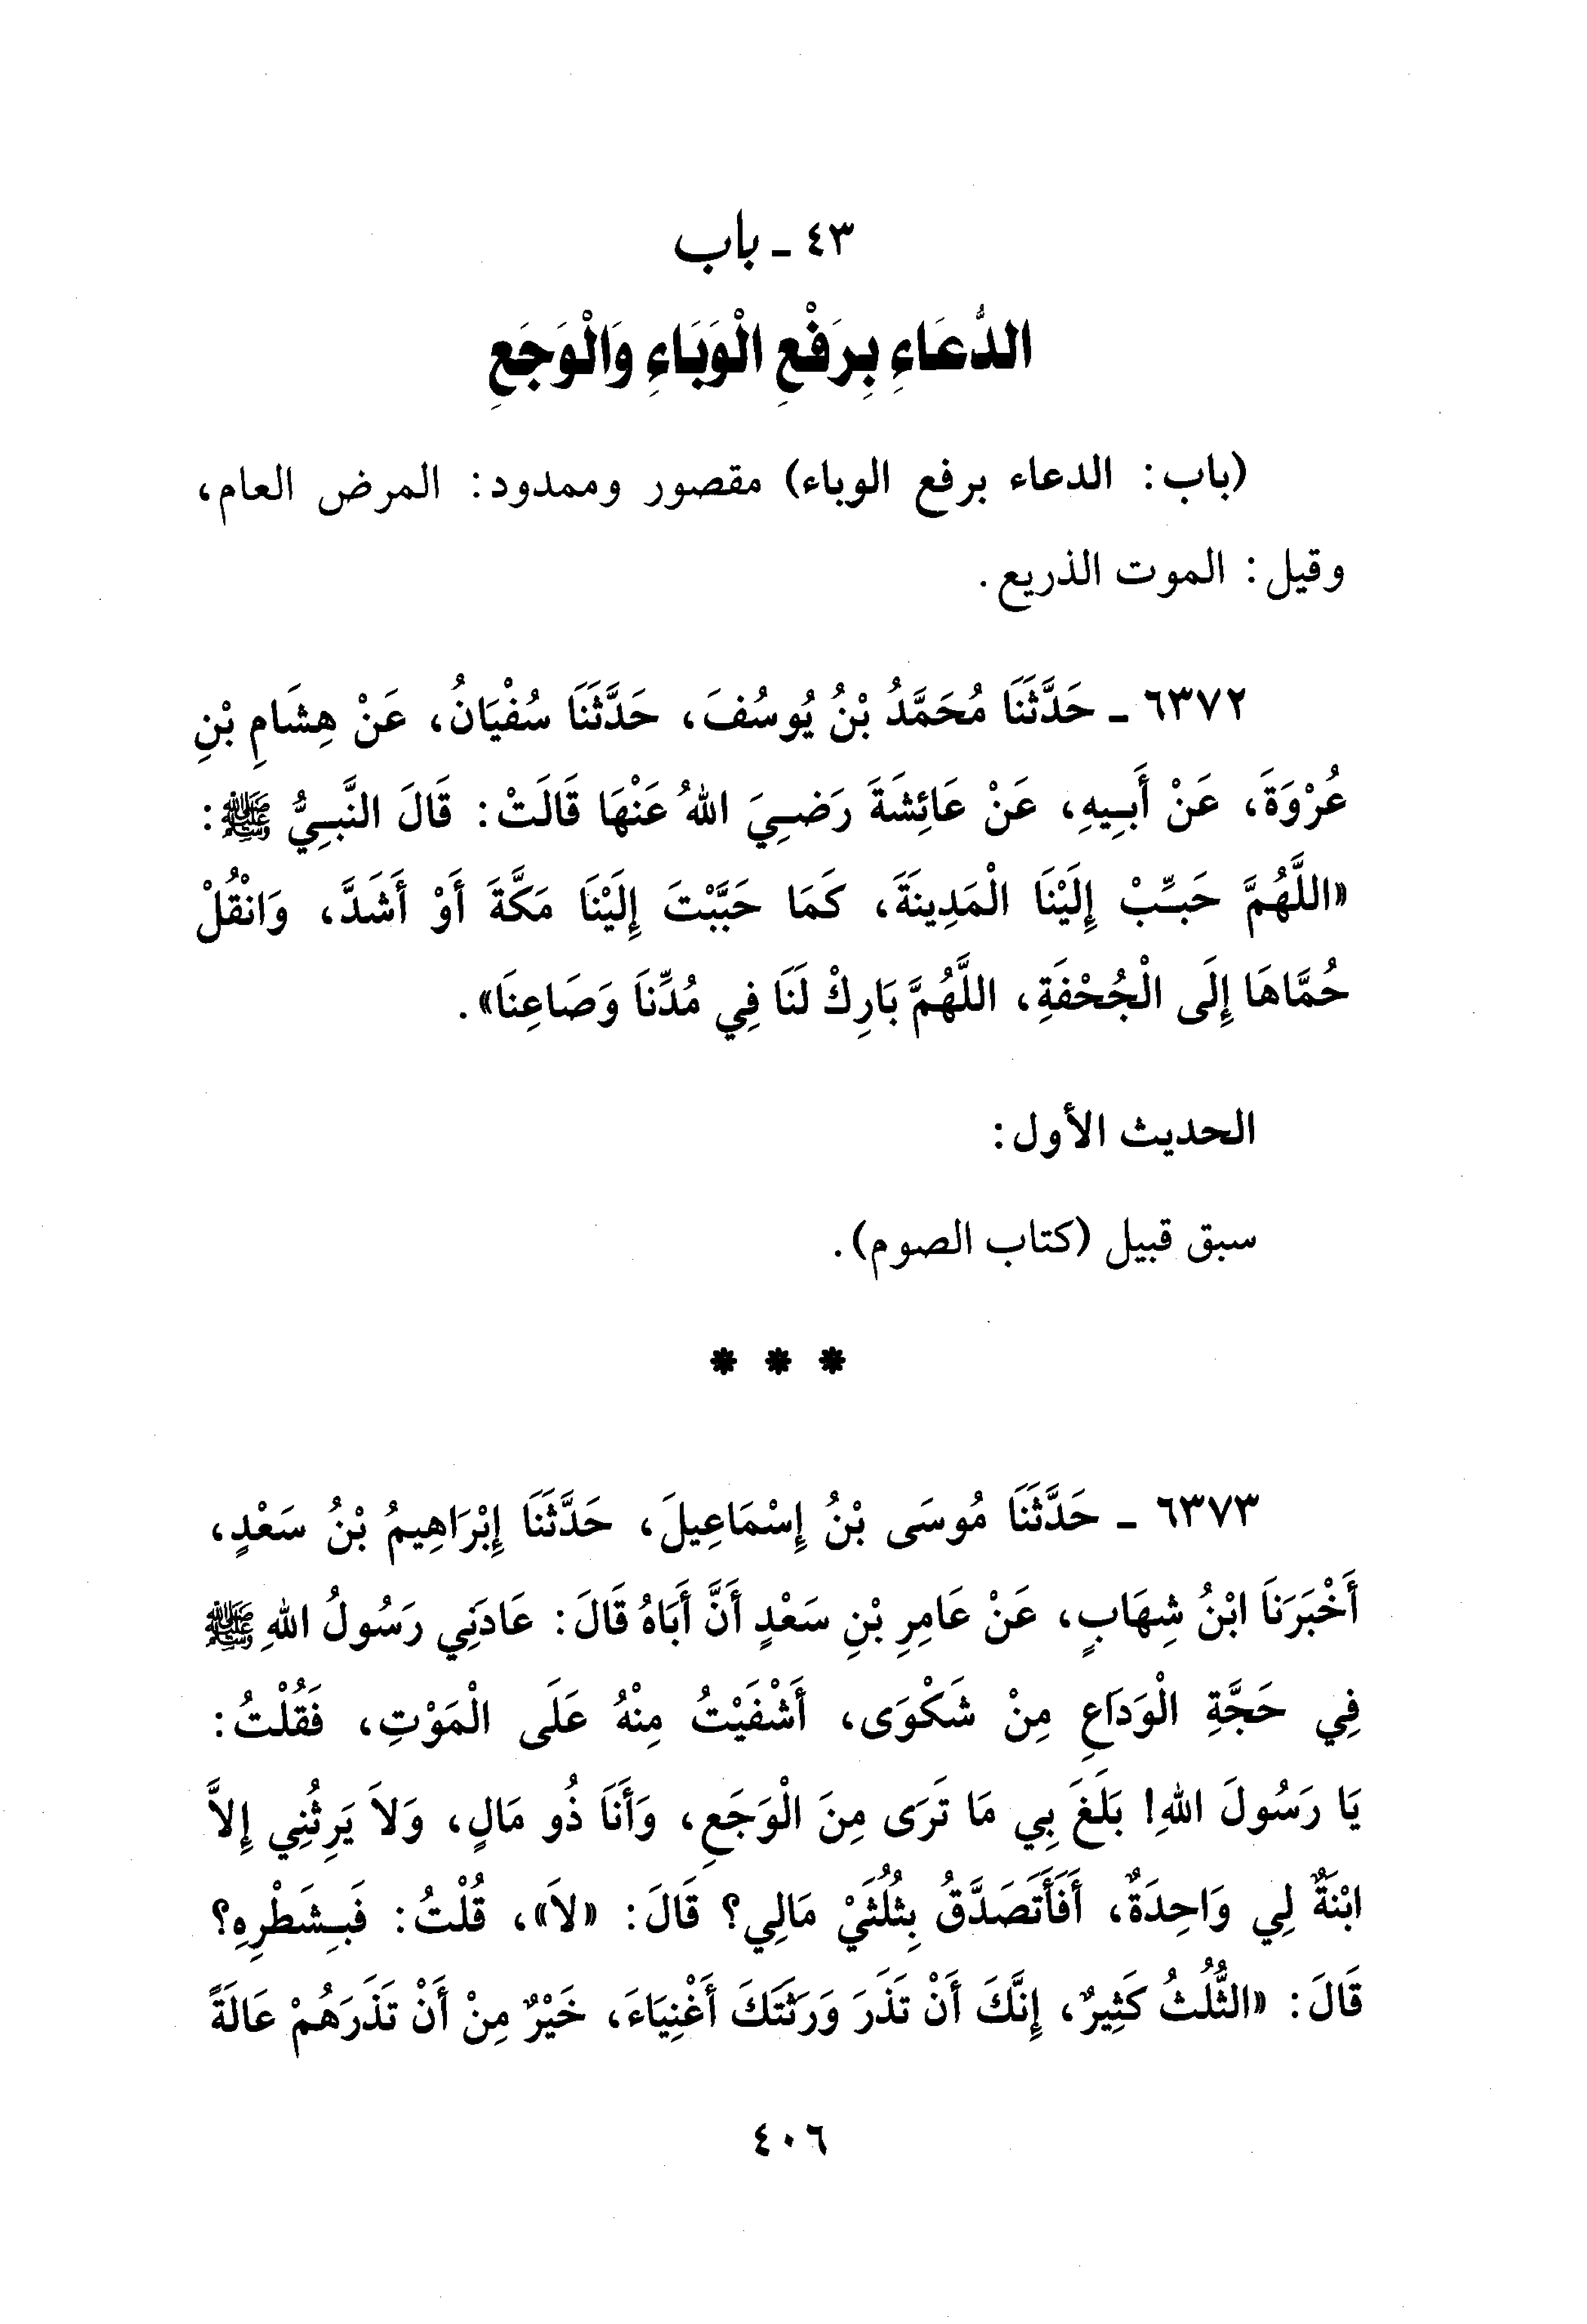 ٤٣ ـ باب
الدُّعَاءِ بِرَفْعِ الْوَبَاءِ وَالْوَجَعِ
(باب: الدعاء برفع الوباء) مقصور وممدود: المرض العام،
وقيل: الموت الذريع.
٦٣٧٢ ـ حَدَّثَنَا مُحَمَّدُ بْنُ يُوسُفَ، حَدَّثَنَا سُفْيَانُ، عَنْ هِشَامِ بْنِ
عُرْوَةَ، عَنْ أَبِيهِ، عَنْ عَائِشَةَ رَضِيَ اللهُ عَنْهَا قَالَتْ: قَالَ النَّبِيُّ ﷺ:
«اللَّهُمَّ حَبِّبْ إِلَيْنَا الْمَدِينَةَ، كَمَا حَبَّبْتَ إِلَيْنَا مَكَّةَ أَوْ أَشَدَّ، وَانْقُلْ
حُمَّاهَا إِلَى الْجُحْفَةِ، اللَّهُمَّ بَارِكْ لَنَا فِي مُدِّنَا وَصَاعِنَا».
الحديث الأول:
سبق قبيل (كتاب الصوم).
* * *
٦٣٧٣ ـ حَدَّثَنَا مُوسَى بْنُ إِسْمَاعِيلَ، حَدَّثَنَا إِبْرَاهِيمُ بْنُ سَعْدٍ،
أَخْبَرَنَا ابْنُ شِهَابٍ، عَنْ عَامِرِ بْنِ سَعْدٍ أَنَّ أَبَاهُ قَالَ: عَادَنِي رَسُولُ اللهِ ﷺ
فِي حَجَّةِ الْوَدَاعِ مِنْ شَكْوَى، أَشْفَيْتُ مِنْهُ عَلَى الْمَوْتِ، فَقُلْتُ:
يَا رَسُولَ اللهِ! بَلَغَ بِي مَا تَرَى مِنَ الْوَجَعِ، وَأَنَا ذُو مَالٍ، وَلاَ يَرِثُنِي إِلاَّ
ابْنَةٌ لِي وَاحِدَةٌ، أَفَأَتَصَدَّقُ بِثُلُثَيْ مَالِي؟ قَالَ: «لاَ»، قُلْتُ: فَبِشَطْرِهِ؟
قَالَ: «الثُّلُثُ كَثِيرٌ، إِنَّكَ أَنْ تَذَرَ وَرَثَتَكَ أَغْنِيَاءَ، خَيْرٌ مِنْ أَنْ تَذَرَهُمْ عَالَةً
٤٠٦